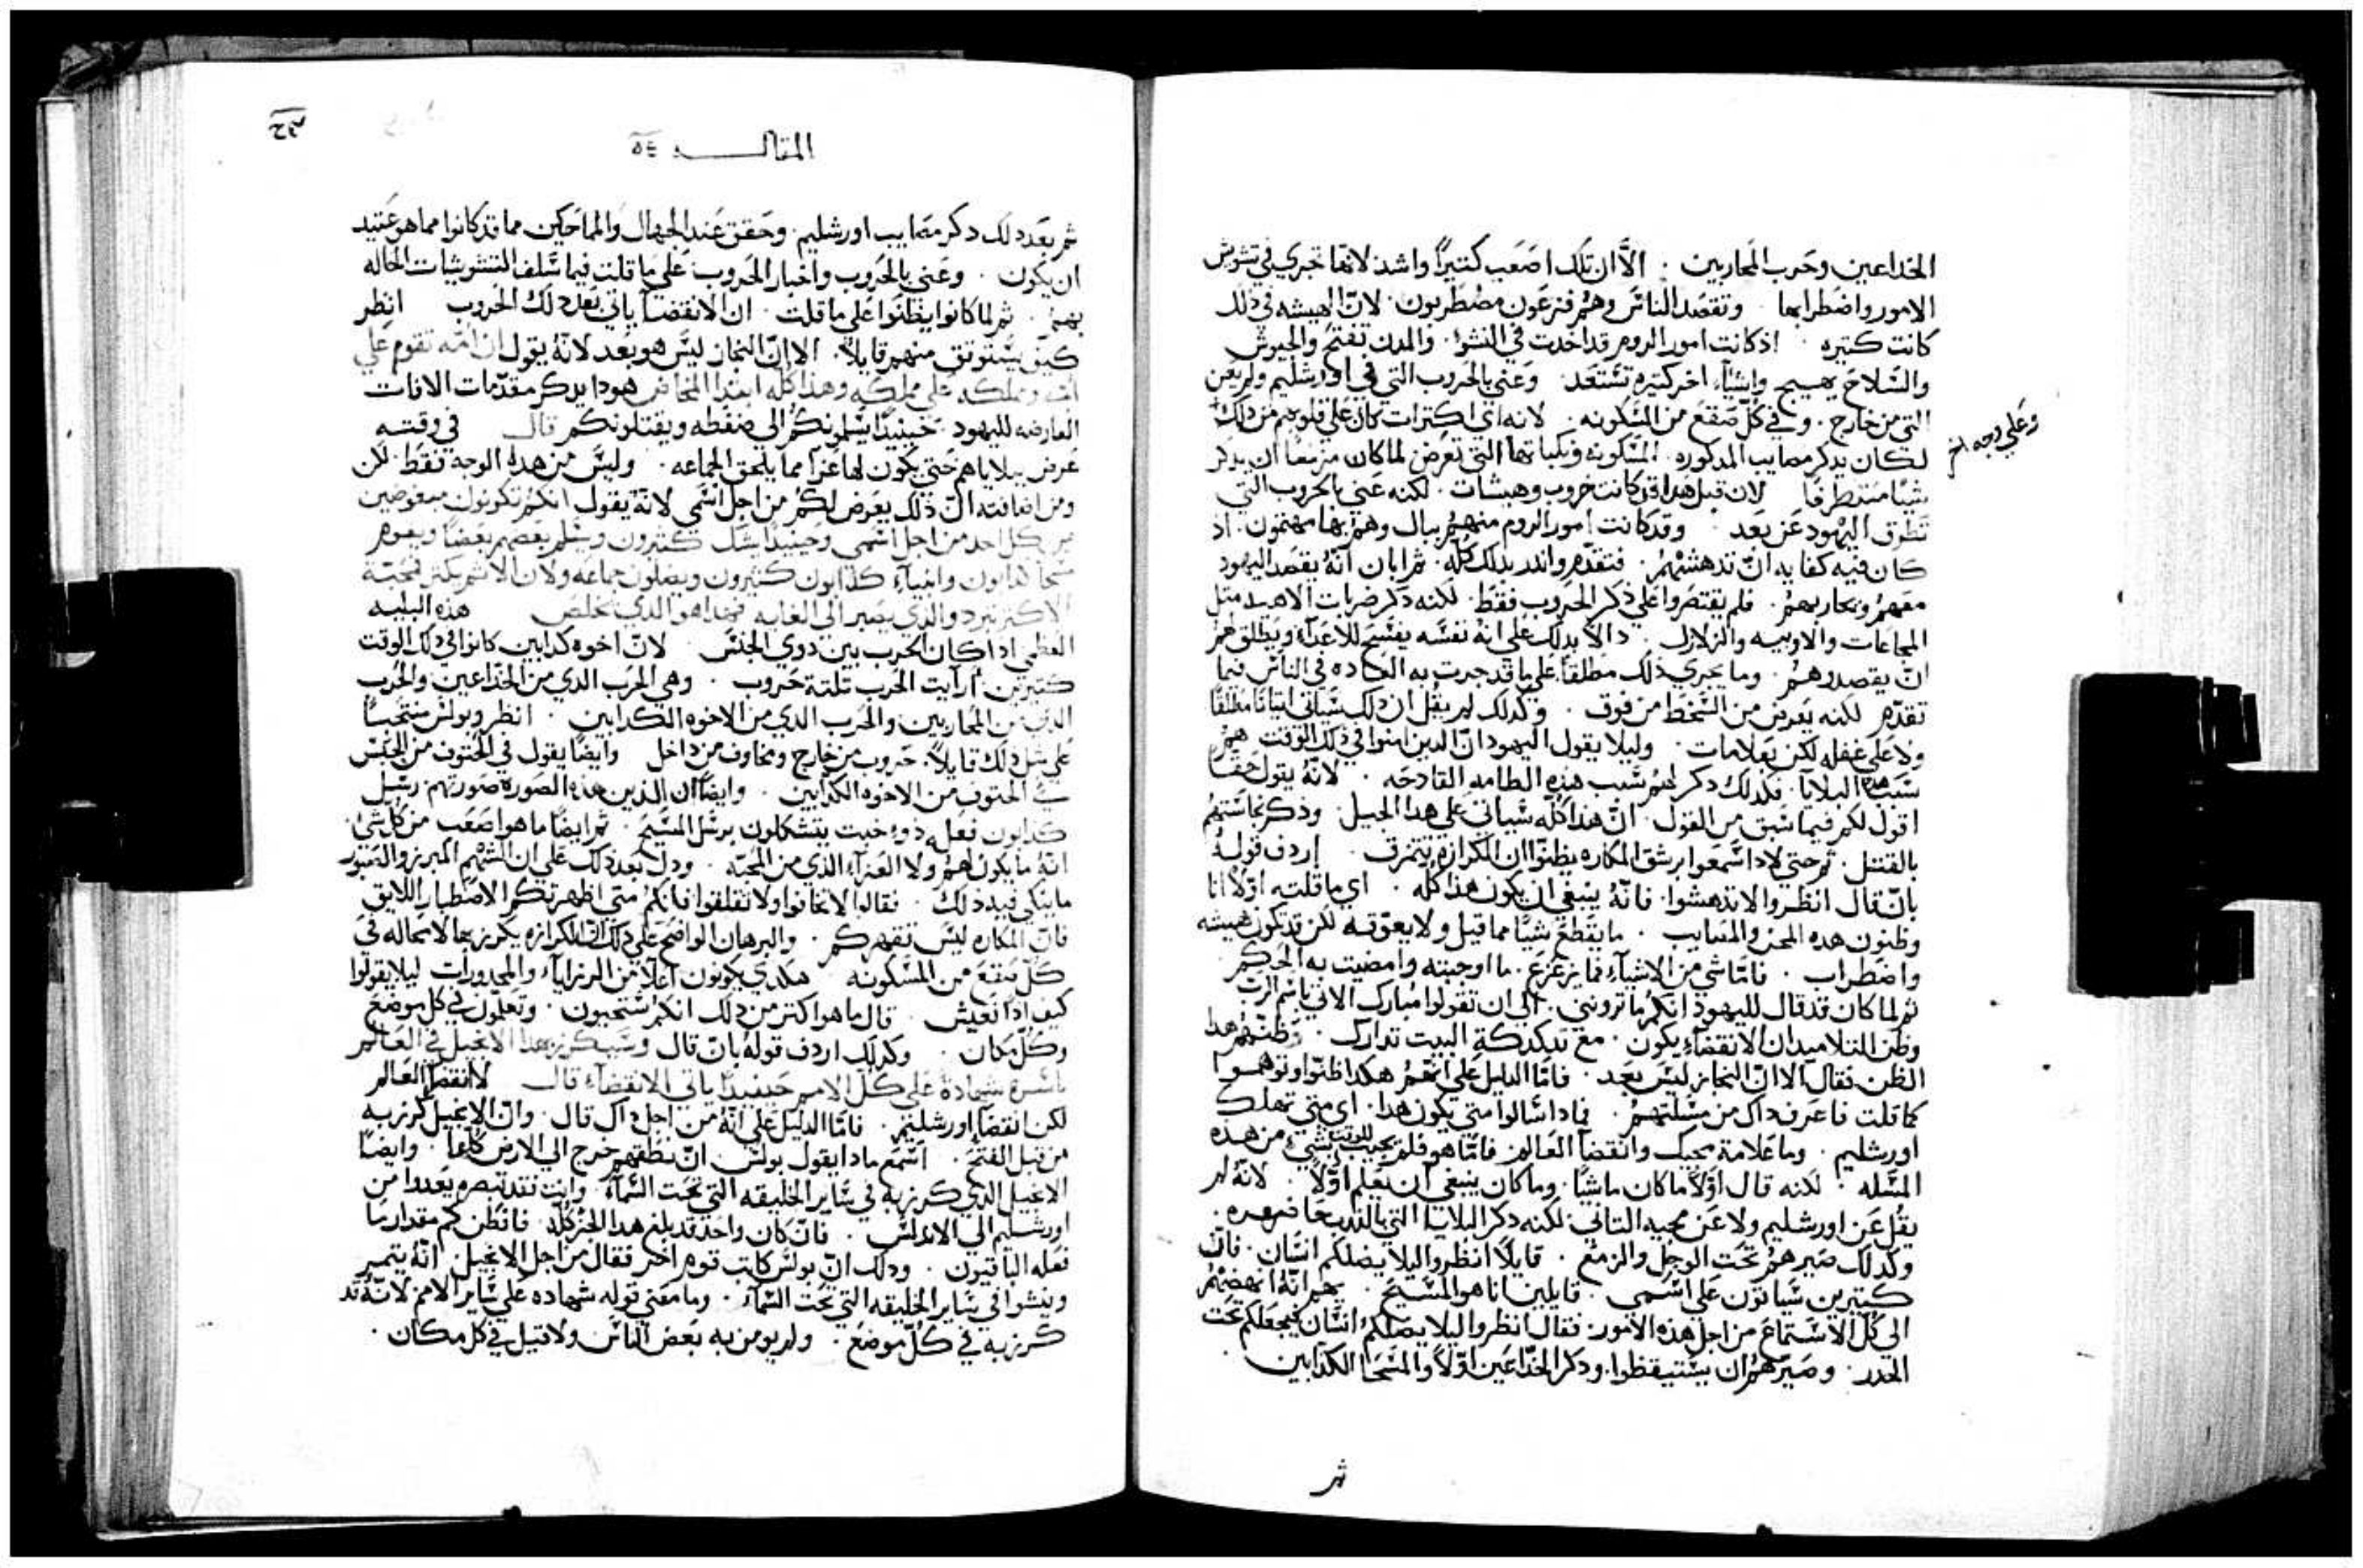 الخداعين وحرب المحاربين . الا ان تلك اصعب كثيرًا واشد لانها تجري في تشويش
الامور واضطرابها . وتقصد الناس وهم فزعون مضطربون . لان الهيشه في ذلك
كانت كتيره . اذ كانت امور الروم قد اخدت في النشو . والمدن تفتح والجيوش
والسلاح يهيج واشيآء اخر كتيره تستعد . وعني بالحروب التي في اورشليم ولم يعن
التي من خارج . وفي كل صقع من المسكونه . لانه اي اكترات كان على قلوبهم من ذلك
وعلي وجه اخر
لكان يدكر مصايب المدكوره . المسكونه ونكباتها التي تعرض لما كان مزمعًا ان يدكر
شيًا متطرفًا لان قبل هدا قد كانت حروب وهيشات . لكنه عني بالحروب التي
تطرق اليهود عن بعد . وقد كانت امور الروم منهم ببال وهم بها مهتمون . اذ
كان فيه كفايه ان تدهشهم . فتقدم واندر بدلك كله . ثم ابان انه يقصد اليهود
معهم ويحاربهم . فلم يقتصروا على ذكر الحروب فقط . لكنه دكر ضربات الاهـه متل
المجاعات والاوبيه والزلازل . دالا بدلك علي انه نفسه يفسح للاعدآء ويطلق لهم
ان يقصدوهم . وما يجري ذلك مطلقا علي ما قد جرت به العاده في الناس فيما
تقدم لكنه يعرض من السخط من فوق . وكدلك لم يقل ان دلك سياتي اتيانا مطلقًا
ولا علي غفله لكن بعلامات . وليلا يقول اليهود ان الدين امنوا في ذلك الوقت هم
سبب هذه البلايا . فكدلك دكر لهم سبب هذه الطامه القادحه . لانه يقول حقًا
اقول لكم فيما سبق من القول . ان هدا كله سياتي علي هدا الجيل . ودكر نجاستهم
بالقتل . ثم حتي لادا سمعوا برشق المكاره يظنوا ان الكرازه تتمزق . اردف قوله
بان قال انظروا لا تدهشوا . فانه ينبغي ان يكون هذا كله . اي ما قلته اولا انا
وظنون هده المحن والمصايب . ما يقطع شيًا مما قيل ولا يعوقه لكن قد تكون هيشه
واضطراب . فاما شي من الاشيآء فما يزعزع . ما اوجبته وامضيت به الحكم
ثم لما كان قد قال لليهود انكم ما تروني . الي ان تقولوا مبارك الاتي باسم الرب
وظن التلاميد ان الانقضآء يكون . مع تدكدكة البيت تدارك . ظنهم هدا
الظن فقال الا ان النجاز ليس بعد . فاما الدليل علي انهم هكدا ظنوا وتوهموا
كما قلت فاعرف داك من مسلتهم . فمادا سالوا متي يكون هدا . اي متي تهلك
اورشليم . وما علامة مجيك وانقضآ العالم فاما هو فلم يجيب للوقت بشي من هذه
المسله . لكنه قال اولا ما كان ماشيًا . وما كان ينبغي ان يعلم اولًا . لانه لم
يقل عن اورشليم ولا عن مجيه التاني . لكنه دكر البلايا التي
وكدلك صيرهم تحت الوجل والزمع . قايلا انظروا ليلا يضلكم انسان . فان
كتيرين سياتون علي اسمي . قايلين انا هو المسيح . ثم انه انهضهم
الي كل الاستماع من اجل هذه الامور . فقال انظروا ليلا يضلكم انسان فيجعلكم تحت
الحدر . وصيرهم ان يستيقظوا . ودكر الخداعين اولًا والمسحا الكدابين
ثم
المقالـــــه ٥٤
ثم بعد دلك دكر مصايب اورشليم . وحقق عند الجهال والمماحكين مما قد كانوا مما هو عتيد
ان يكون . وعني بالحروب واخبار الحروب علي ما قلت فيما سلف التشويشات الحاله
بهم . ثم لما كانوا يظنوا علي ما قلت . ان الانقضآ ياتي بعد دلك الحروب انظر
كيف يستوتق منهم قايلًا . الا ان النجاز ليس هو بعد لانه يقول ان امه تقوم علي
امه ومملكه علي مملكه وهذا كله ابتدا المخاض هودا يدكر مقدمات الافات
العارضه لليهود . حينيدا يسلمونكم الي ضغطه ويقتلونكم قال في وقته
عرض ببلاياهم حتي يكون لها عزا مما يلحق الجماعه . وليس من هدا الوجه فقط . لكن
ومن اضافته ان ذلك يعرض لكم من اجل اسمي لانه يقول انكم تكونون مبغوضين
من كل احد من اجل اسمي وحينيدًا يشك كتيرون ويسلم بعضهم بعضًا ويقوم
مسحا كدابون وانبيآء كذابون كتيرون ويضلون جماعه ولان الاتم يكتر فمحبة
الاكتر تبرد والدي يصبر الي الغايه فهدا هو الدي يخلص هذه البليه
العظمي ادا كان الحرب بين دوي الجنس لان اخوه كدابين كانوا في دلك الوقت
كتيرين . ارايت الحرب تلتة حروب . وهي الحرب الدي من الخداعين والحرب
الدي من المحاربين والحرب الدي من الاخوه الكدابين . انظر وبولس منتحبًا
علي متل دلك قايلًا . حروب من خارج ومخاوف من داخل وايضًا يقول في الحتوف من الجنس
في الحتوف من الاخوه الكدابين . وايضًا ان الذين هذه الصوره صورتهم رسل
كدابون فعله ذوو خبت يتشكلون برسل المسيح . ثم ايضًا ما هو اصعب من كل شي
انه ما يكون لهم ولا العزآء الذي من المحبه . ودل بعد دلك علي ان الشهم المبرز والصبور
ما ينكي فيه ذلك . فقال لا تخافوا ولا تقلقوا فانكم متي اظهرتكم الاصطبار اللايق
فان المكاره ليس تقهركم . والبرهان الواضح علي دلك ان الكرازه يكرز بها لا محاله في
كل صقع من المسكونه هكدي يكونون اعلا من الرزايآء والمحدورات ليلا يقولوا
كيف ادًا نعيش . قال ما هو اكتر من دلك انكم ستحيون . وتعلمون في كل موضع
وكل مكان . وكدلك اردف قوله بان قال وسيكرز بهدا الانجيل في العالم
باسره شهادة علي كل الامم حينيدًا ياتي الانقضآء قال لا انقضآ العالم
لكن انقضا اورشليم . فاما الدليل علي انه من اجل داك قال . وان الانجيل كرز به
من قبل الفتح . اسمع مادا يقول بولس ان نطقهم خرج الي الارض كلها . وايضًا
الانجيل الدي كرز به في ساير الخليقه التي تحت السمآء . وانت فقد تبصره بعددا من
اورشليم الي الاندلس . فان كان واحد قد بلغ هدا الجز كله فافطن كم مقدار ما
فعله الباقيون . ودلك ان بولس كاتب قوم اخر فقال من اجل الانجيل انه يتمير
وينشوا في ساير الخليقه التي تحت السمآء . وما معني قوله شهاده علي ساير الامم لانه قد
كرز به في كل موضع . ولم يومن به بعض الناس ولا قبل في كل مكان .